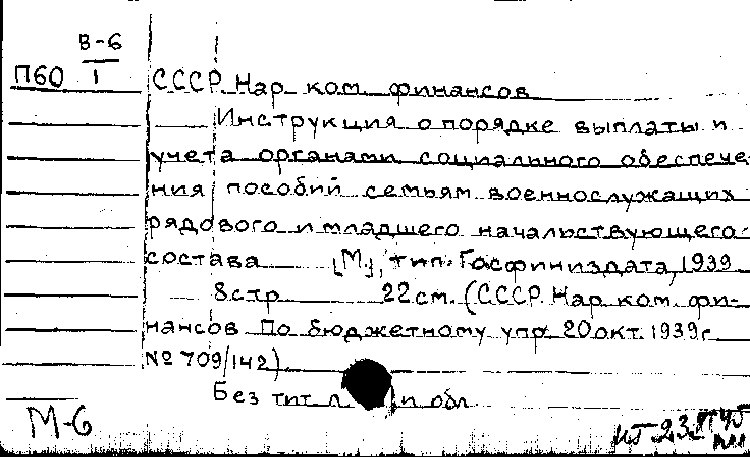 В-6
П60 1 СССР Нар. ком. финансов
Инструкция о порядке выплаты и
учета органами социального обеспече-
ния пособий семьям военнослужащих
рядового и младшего начальствующего
состава [М.], тип. Госфиниздата, 1939
8 стр 22 см. (СССР. Нар. ком. фи-
нансов По бюджетному упр. 20 окт. 1939 г
№ 709/142)
Без тит л и обл
М-6